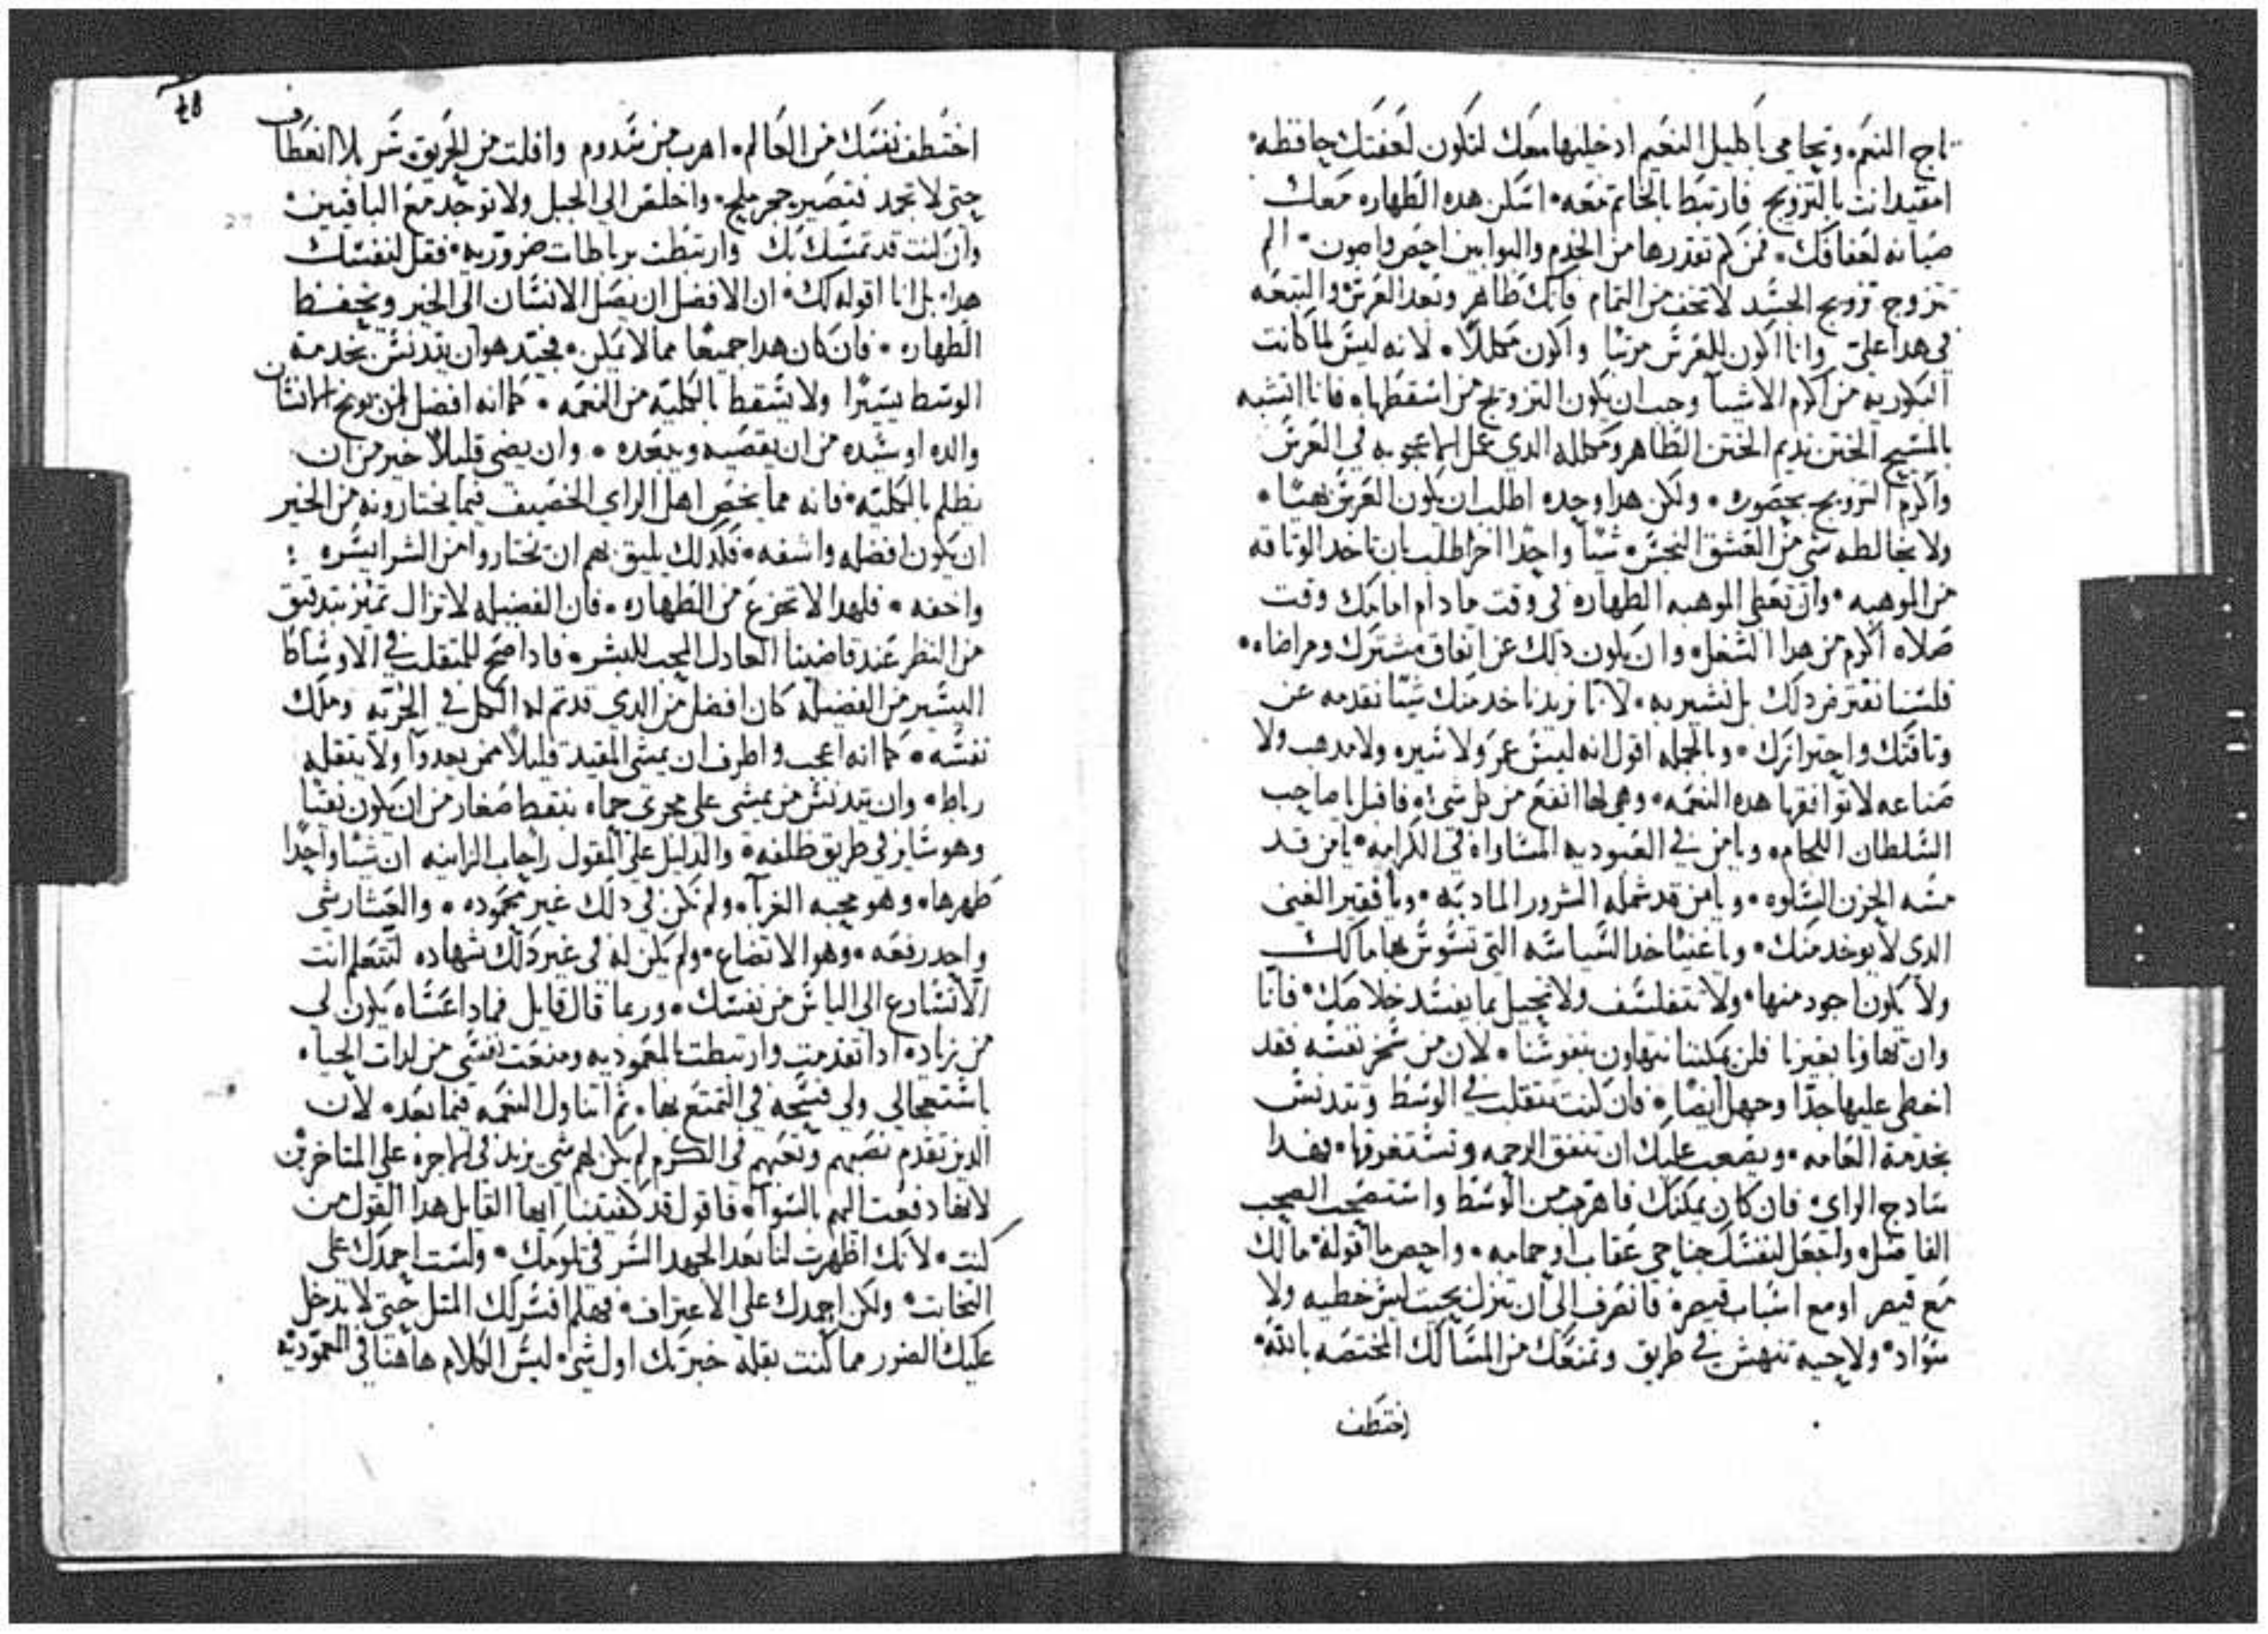 تاج النعم. وتحامي باكليل النعيم ادخليها معك لتكون لعفتك حافظه.
امقيد انت بالتزويج فارتبط بالخاتم معه. اسكن هده الطهاره معك
صيانه لعفافك. فمن لم تقدرها من الخدم والبوابين احص واصون. الم
تتزوج تزويج الجسد لا تخف من التمام فانك طاهر وبعد العرس والتبعه
في هدا علي وانا اكون للعرس مرتبا واكون مكللا. لانه ليس لما كانت
البكوريه من اكرم الاشيا وجب ان يكون التزويج من اسقطها. فانا اتشبه
بالمسيح الختن نديم الختن الطاهر ومكلله الدي عمل الاعجوبه في العرس
واكرم التزويج بحضوره. ولكن هدا وحده اطلب ان يكون العرس نقيا.
ولا يخالطه شي من العشق النجس. شيا واحدا اخر اطلب بان تاخد الوثاقه
من الموهبه. وان تعطي الموهبه الطهاره في وقت ما دام امامك وقت
صلاه اكرم من هدا الشغل. وان يكون دلك عن اتفاق مشترك ومراضاه.
فلسنا نفترض دلك بل نشير به. لاننا نريد ناخد منك شيا نقدمه عن
وثاقتك واحترازك. وبالجمله اقول انه ليس عمر ولا سيره ولا مدهب ولا
صناعه لا توافقها هده النعمه. وهي لها انفع من كل شي. فاقبل يا صاحب
السلطان اللجام. ويا من في العبوديه المساواه في الكرامه. يا من قد
مسه الحزن السلوه. ويا من قد شمله السرور الماديه. ويا فقير الغني
الدي لا يوخد منك. ويا غنيا خد السياسه التي تسوس بها ما لك
ولا يكون اجود منها. ولا تتفلسف ولا تحيل بما يفسد خلاصك. فانا
وان تهاونا بغيرنا فلن يمكننا نتهاون بنفوسنا. لان من سخر نفسه فقد
اخطي عليها جدا وجهل ايضا. فان كنت تتقلب في الوسط وتتدنس
بخدمة العامه. ويصعب عليك ان تنفق الرحمه وتستغرقها. فهدا
سادج الراي. فان كان يمكنك فاهرب من الوسط واستصحب الصحب
الفاضل. واجعل لنفسك جناحي عقاب او حمامه. واحص ما اقوله. ما لك
مع قيصر او مع اسباب قيصر. فانصرف الي ان تنزل بحيث ليس خطيه ولا
سواد. ولا حيه تنهش في طريق وتمنعك من المسالك المختصه بالله.
اختطف
48
اختطف نفسك من العالم. اهرب من سدوم وافلت من الحريق. سر بلا انعطاف
حتى لا تجمد فتصير حجر ملح. واخلص الي الجبل ولا توجد مع الباقيين
وان كنت قد تمسك بك وارتبطت برباطات ضروريه. فقل لنفسك
هدا. بل انا اقوله لك. ان الافضل ان يصل الانسان الي الخير ويحفظ
الطهاره. فان كان هدا جميعا مما لا يمكن. فجيد هو ان يتدنس بخدمة
الوسط يسيرا ولا يسقط بالكليه من النعمه. كما انه افضل لمن يوبخ الانسان
والده او سيده من ان يقصيه ويبعده. وان يضي قليلا خير من ان
يظلم بالكليه. فانه مما يخص اهل الراي الخصيف فيما يختارونه من الخير
ان يكون افضله واشفه. فكدلك يليق بهم ان يختاروا من الشر ايسره
واخفه. فلهدا لا تجزع من الطهاره. فان الفضيله لا تزال تميز بتدقيق
من النظر عند قاضينا العادل المحب للبشر. فادا صح للمتقلب في الاوساط
اليسير من الفضيله كان افضل من الدي قد تم له الكمل في الحريه وملك
نفسه. كما انه اعجب واطرف ان يمشي المقيد قليلا ممن يعدوا ولا يثقله
رباط. وان يتدنس من يمشي علي مجري حماه بنقط صغار من ان يكون نقيا
وهو ساير في طريق نظيفه. والدليل علي المقول راحاب الزانيه ان شيا واحدا
طهرها. وهو محبه الغربا. ولم تكن في دلك غير محموده. والعشار شي
واحد رفعه. وهو الاتضاع. ولم يكن له في غير دلك شهاده لتتعلم انت
الا تسارع الي الياس من نفسك. وربما قال قايل فمادا عساه يكون لي
من زياده ادا تقدمت وارتبطت بالمعموديه ومنعت نفسي من لدات الحياه
باستعجالي ولي فسحه في التمتع بها. ثم اتناول النعمه فيما بعد. لان
الدين تقدم نصبهم وتعبهم في الكرم لم يكن لهم شي يزيد في الاجره علي المتاخرين
لانها دفعت اليهم بالسوا. فاقول قد كفيتنا ايها القايل هدا القول من
كنت. لانك اظهرت لنا بعد الجهد السر في تلومك. ولست احمدك علي
التخابث. ولكن احمدك علي الاعتراف. فهلم افسر لك المثل حتى لا يدخل
عليك الضرر مما كنت بقلة خبرتك اول شي. ليس الكلام هاهنا في المعموديه